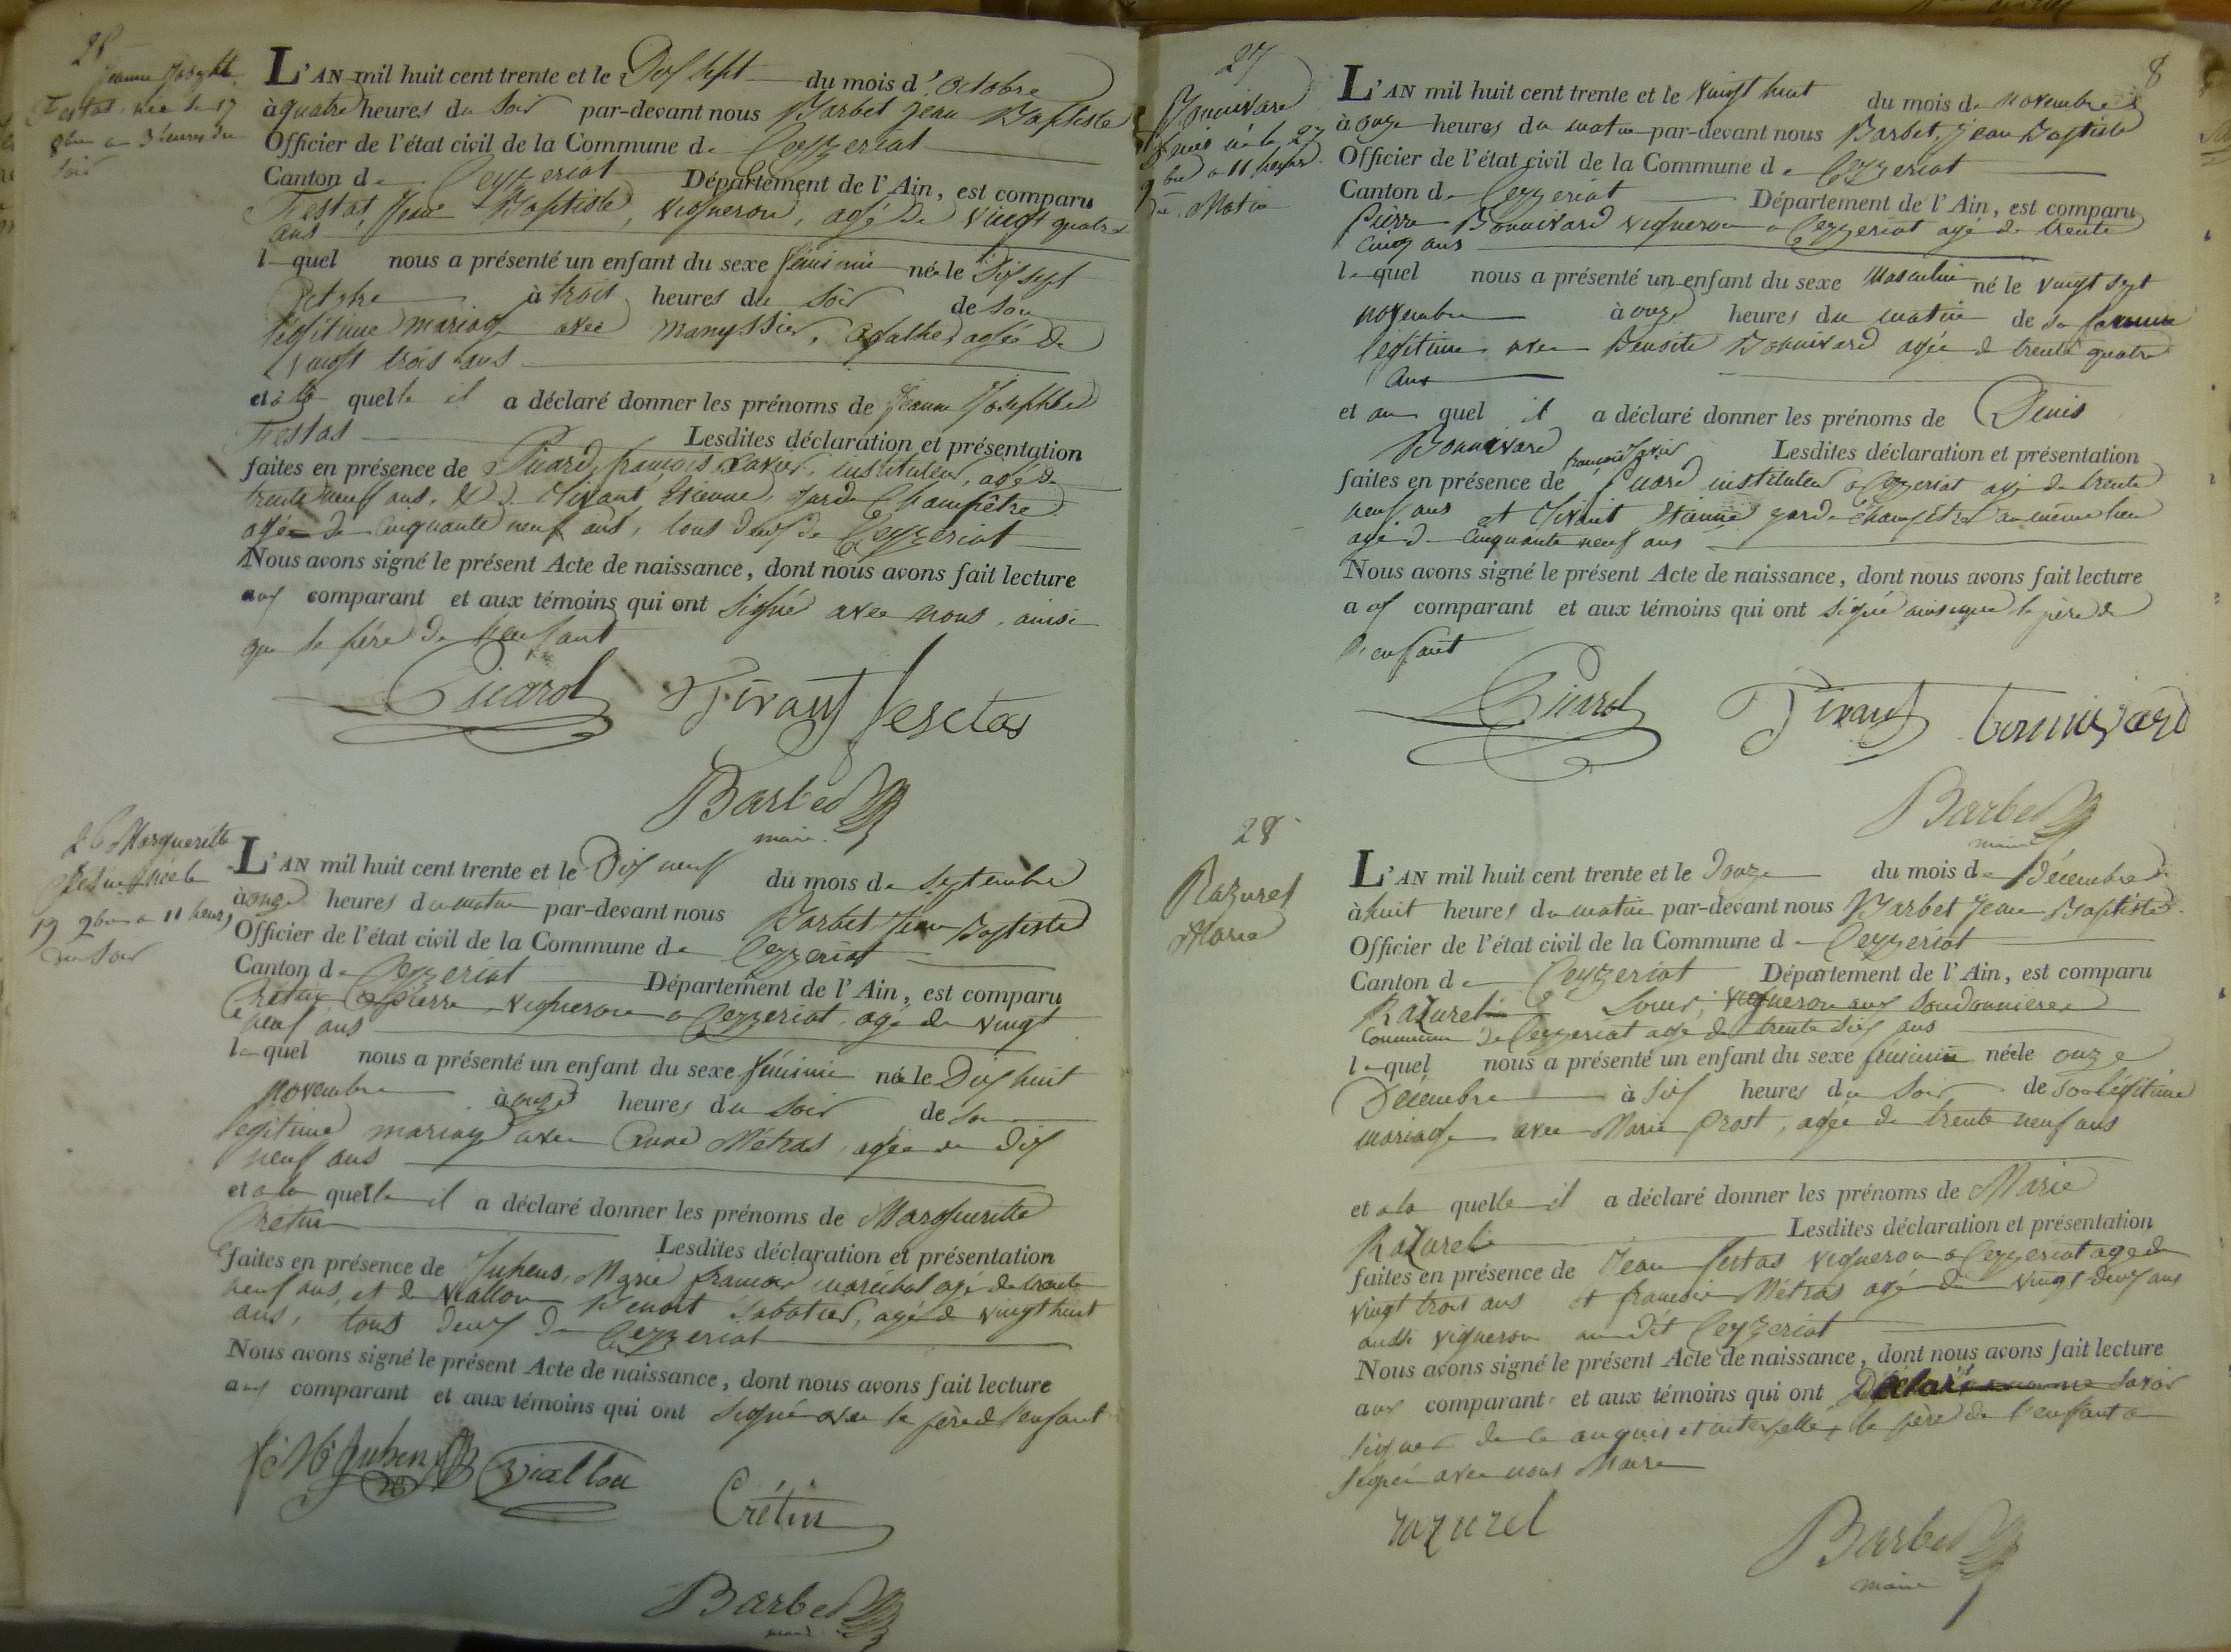 Jeanne Josephte
Festas née le 17
8bre a 3 heures du
soir
L'AN mil huit cent trente et le Dix sept du mois d'Octobre
à quatre heures du soir par-devant nous Barbet Jean Baptiste
Officier de l'état civil de la Commune de Ceyzeriat
Canton de Ceyzeriat Département de l'Ain, est comparu
Festas, Jean Baptiste, vigneron, agé de vingt quatre
ans
lequel nous a présenté un enfant du sexe féminin née le dix sept
Octobre à trois heures du soir de son
légitime mariage avec Agathe, agée de
vingt trois ans
et a la quelle il a déclaré donner les prénoms de Jeanne Josephte
Festas Lesdites déclaration et présentation
faites en présence de Picard, françois xavier, instituteur, agé de
trente neuf ans, & d. Tivant Etienne, garde Champêtre
agé de cinquante neuf ans, tous deux de Ceyzeriat
Nous avons signé le présent Acte de naissance, dont nous avons fait lecture
aux comparant et aux témoins qui ont signé avec nous, ainsi
que le père de l'enfant
Picard Tivant festas
Barbet
maire
26 Margueritte
Cretin née le
19 9bre a 11 heures
du soir
L'AN mil huit cent trente et le Dix neuf du mois de septembre
à onze heures du matin par-devant nous Barbet Jean Baptiste
Officier de l'état civil de la Commune de Ceyzeriat
Canton de Ceyzeriat Département de l'Ain, est comparu
Cretin Pierre, vigneron a Ceyzeriat, agé de vingt
neuf ans
lequel nous a présenté un enfant du sexe féminin née le Dix huit
novembre à onze heures du soir de son
légitime mariage avec Anne Métras, agée de dix
neuf ans
et a la quelle il a déclaré donner les prénoms de Margueritte
Cretin Lesdites déclaration et présentation
faites en présence de Juhens, Marie françois maréchal agé de trente
neuf ans, et de Viallon Benoit sabotier, agé de vingt huit
ans, tous deux de Ceyzeriat
Nous avons signé le présent Acte de naissance, dont nous avons fait lecture
aux comparant et aux témoins qui ont signé avec le père de l'enfant
Viallon
Crétin
Barbet
maire
8
27
Bonnivard
Denis né le 27
9bre a 11 heures
du Matin
L'AN mil huit cent trente et le vingt huit du mois de novembre
à onze heures du matin par-devant nous Barbet, Jean Baptiste
Officier de l'état civil de la Commune de Ceyzeriat
Canton de Ceyzeriat Département de l'Ain, est comparu
Pierre Bonnivard vigneron a Ceyzeriat agé de trente
cinq ans
lequel nous a présenté un enfant du sexe Masculin né le vingt sept
novembre à onze heures du matin de sa femme
légitime avec Benoite Bonnivard agée de trente quatre
ans
et au quel il a déclaré donner les prénoms de Denis
Bonnivard Lesdites déclaration et présentation
françois xavier
faites en présence de Picard instituteur a Ceyzeriat agé de trente
neuf ans et Tivant Etienne garde champêtre au même lieu
agé de cinquante neuf ans
Nous avons signé le présent Acte de naissance, dont nous avons fait lecture
aux comparant et aux témoins qui ont signé ainsi que le père de
l'enfant
Picard Tivant bonnivard
Barbet
maire
28
Razurel
Marie
L'AN mil huit cent trente et le Douze du mois de Décembre
à huit heures du matin par-devant nous Barbet Jean Baptiste
Officier de l'état civil de la Commune de Ceyzeriat
Canton de Ceyzeriat Département de l'Ain, est comparu
Razurel Louis, vigneron aux Soudonnieres
Commune de Ceyzeriat agé de trente six ans
lequel nous a présenté un enfant du sexe féminin née le onze
Décembre à six heures du soir de son légitime
mariage avec Marie Prost, agée de trente neuf ans
et a la quelle il a déclaré donner les prénoms de Marie
Razurel Lesdites déclaration et présentation
faites en présence de Jean festas vigneron a Ceyzeriat agé de
vingt trois ans et francois Métras agé de vingt deux ans
aussi vigneron au dit Ceyzeriat
Nous avons signé le présent Acte de naissance, dont nous avons fait lecture
aux comparant et aux témoins qui ont Déclaré savoir
signer de ce enquis et interpellé, le père de l'enfant a
signé avec nous Maire
razurel
Barbet
maire